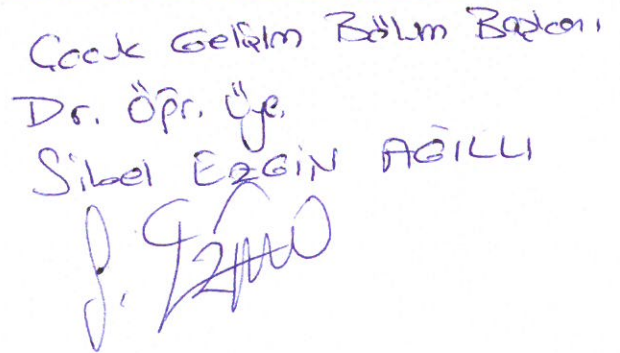 Çocuk Gelişim Bölüm Başkanı
Dr. Öğr. Üye.
Sibel EZGİN AĞILLI